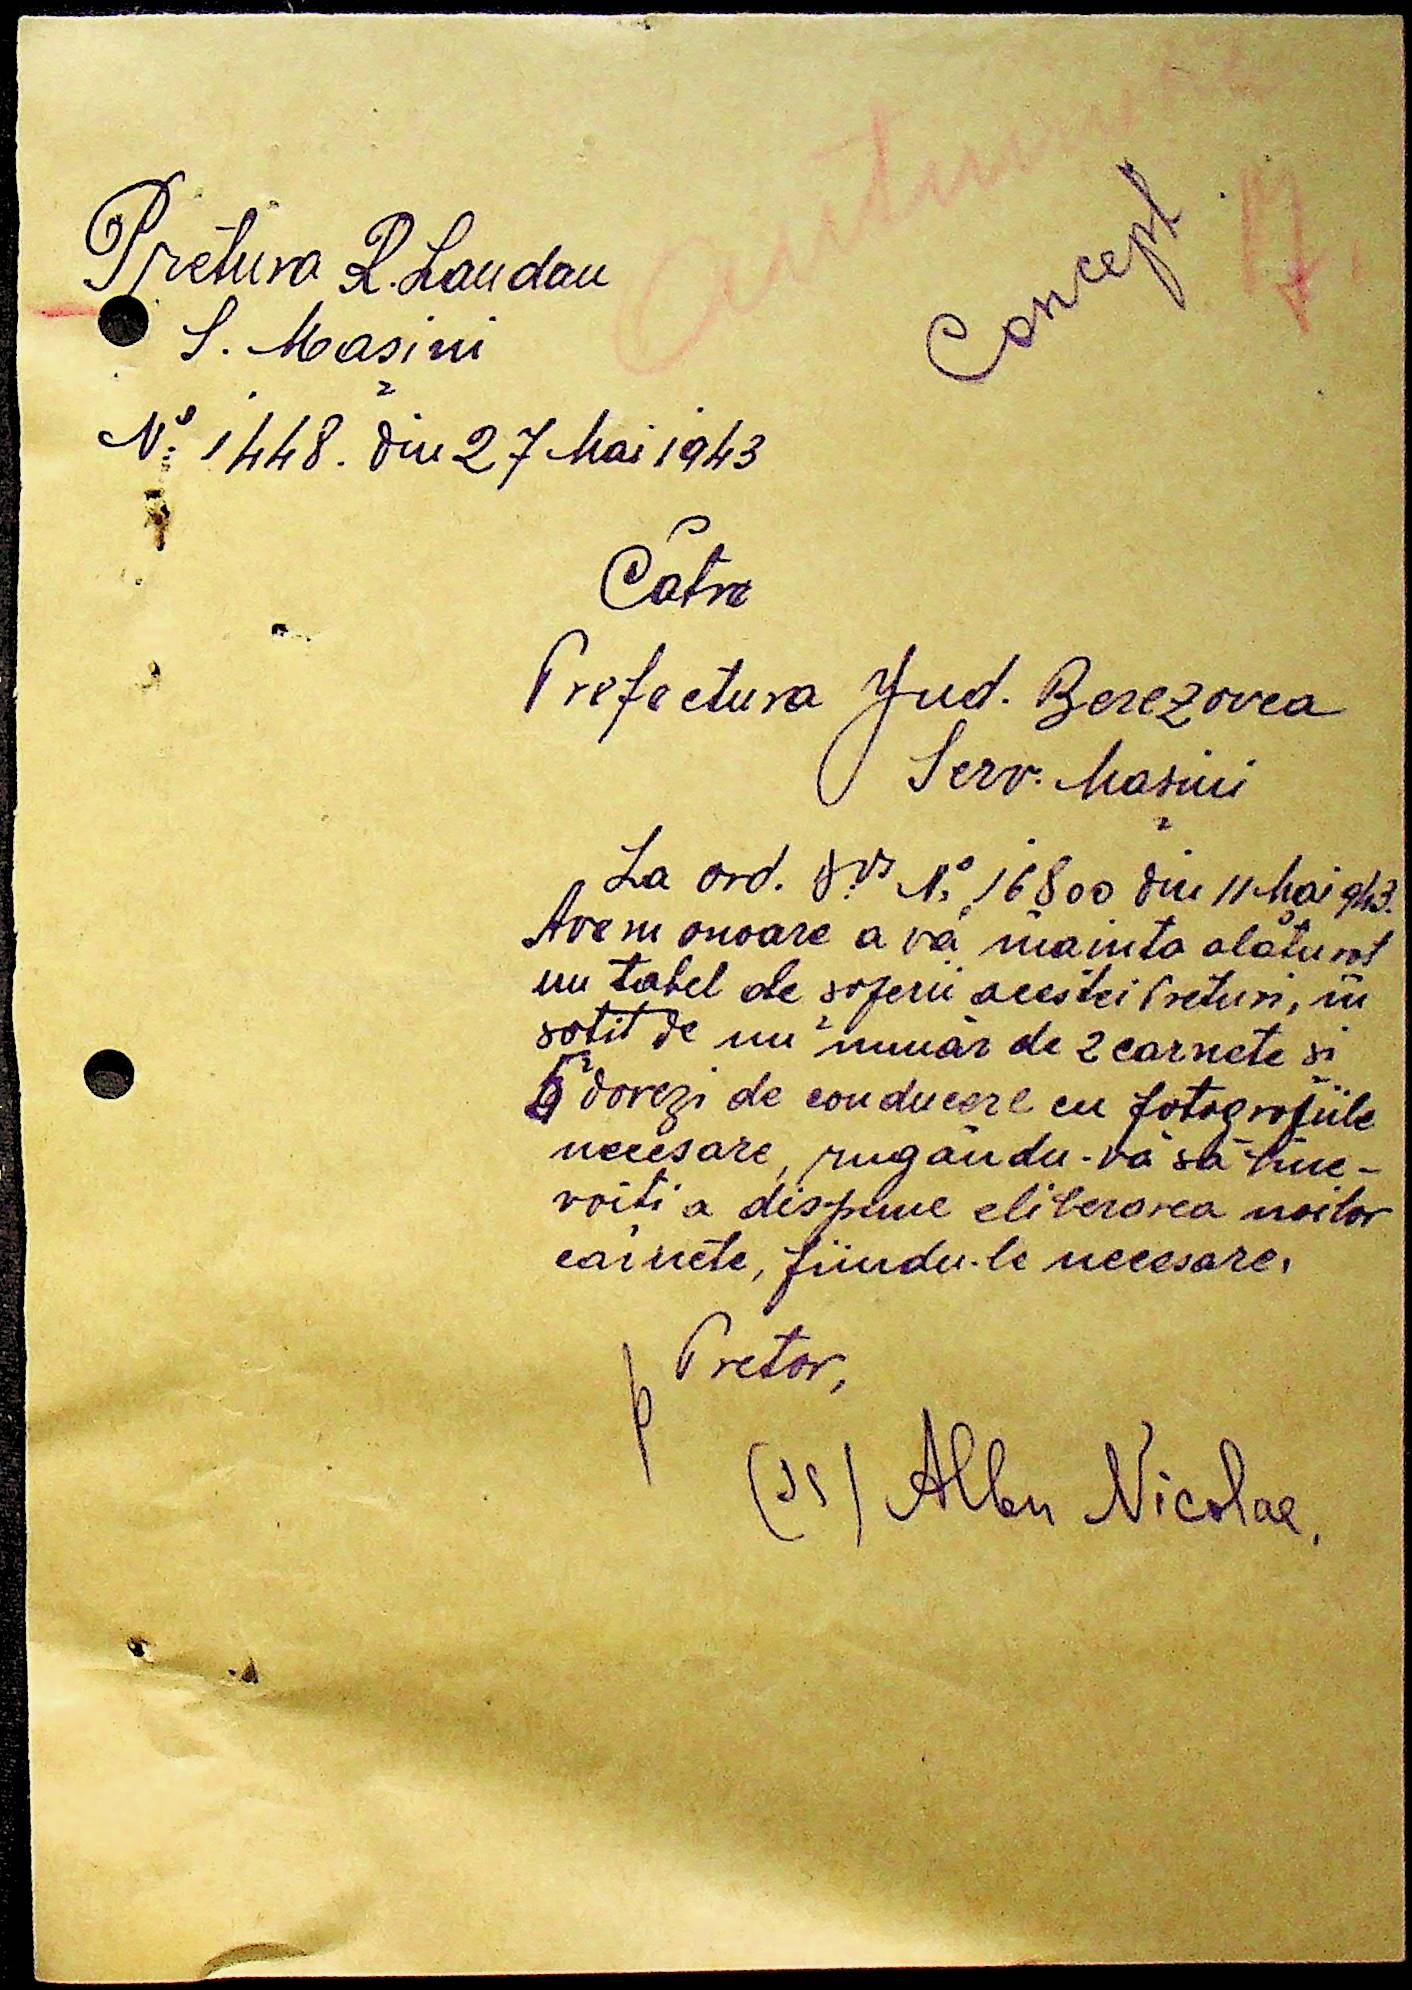 Concept
Pretura R. Landau
S. Mașini
No. 1448. din 27 Mai 1943
Cătră
Prefectura Jud. Berezovca
Serv. Mașini
La ord. Dvs No. 16800 din 11 Mai 943.
Avem onoare a vă înainta alăturat
un tabel de șoferii acestei Preturi, în
soțit de un număr de 2 carnete și
dovezi de conducere cu fotografiile
necesare, rugându-vă să bine-
voiți a dispune eliberarea noilor
carnete, fiindu-le necesare.
p Pretor,
(ss) Albu Nicolae.